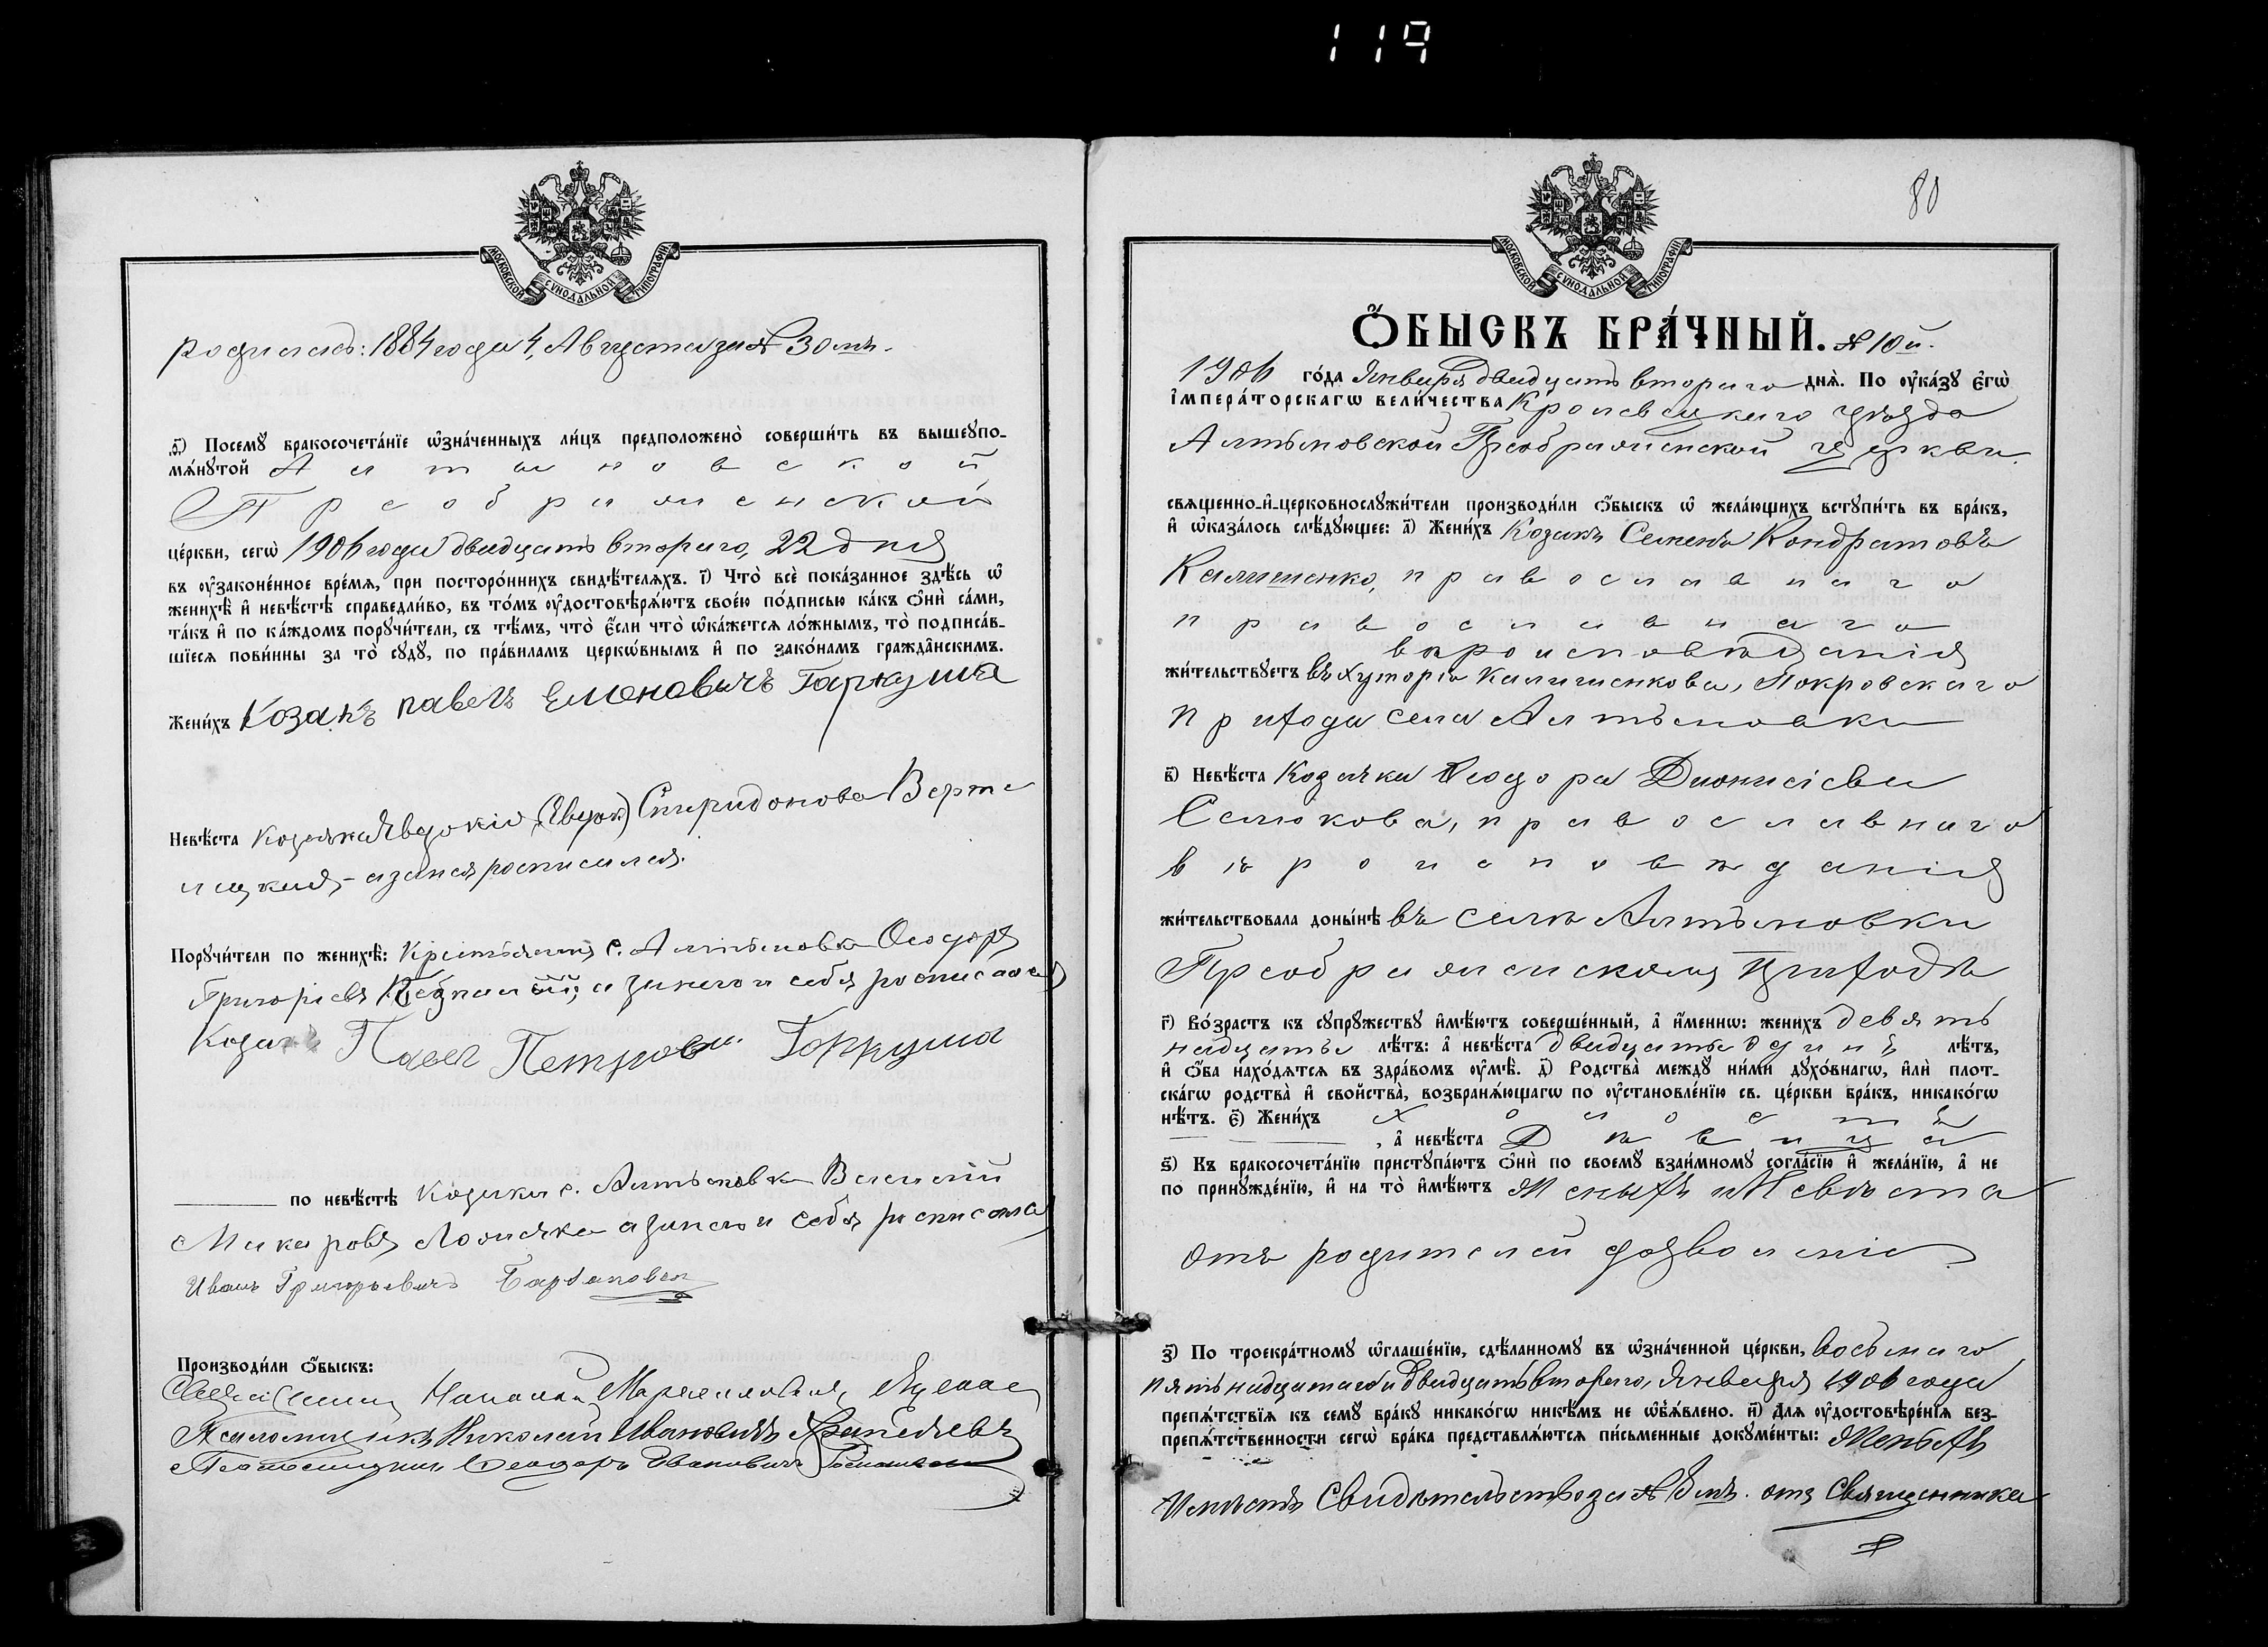 119
МОСКОВСКОЙ СУНОДАЛЬНОЙ ТИПОГРАФІИ
родилась: 1884 года 4, Августа за № 30мъ.
д҃і) Посемꙋ̀ бракосочета́нїе ѡ҆зна́ченныхъ ли́цъ предположено̀ соверши́ть въ вышеꙋпо-
мѧ́нꙋтой Алтыновской
Преображенской
це́ркви, сегѡ̀ 1906 года двадцать второго, 22 дня
въ ᲂу҆законе́нное вре́мѧ, при посторо́ннихъ свидѣ́телѧхъ. і҃) Что̀ всѐ пока́занное здѣ́сь ѡ҆
женихѣ̀ и҆ невѣ́стѣ справедли́во, въ то́мъ ᲂу҆достовѣрѧ́ютъ свое́ю по́дписью ка́къ ѻ҆нѝ са́ми,
та́къ и҆ по ка́ждомъ порꙋчи́тели, съ тѣ́мъ, что̀ є҆́сли что̀ ѡ҆ка́жетсѧ ло́жнымъ, то̀ подписа́в-
шїесѧ пови́нны за то̀ сꙋдꙋ̀, по пра́виламъ церкѡ́внымъ и҆ по зако́намъ гражда̂нскимъ.
Жени́хъ Козакъ павелъ Гаркуша
Невѣ́ста Козачка Спиридонова
а за нея росписался.
Порꙋчи́тели по женихѣ̀: с. Алтыновки Ѳеодоръ
Григоріевъ а за него и себя росписался
Козакъ Павел Петрови Горкуша
по невѣ́стѣ с. Алтыновки Василій
Макаровъ а за него и себя росписался
Иванъ Григорьевичъ
Производи́ли ѻ҆́быскъ:
Священникъ
Псаломщикъ Николай Ивановичъ
Псаломщикъ Ѳеодоръ Ивановичъ
80
МОСКОВСКОЙ СУНОДАЛЬНОЙ ТИПОГРАФІИ
Ѻ҆́БЫСКЪ БРА́ЧНЫЙ. № 10й.
1906 го́да Января двадцать второго днѧ̀. По ᲂу҆ка́зꙋ є҆гѡ̀
і҆мпера́торскагѡ вели́чества Кролевецкаго уѣзда
Алтыновской Преображенской церкви.
свѧщенно-и҆-церковнослꙋжи́тели производи́ли ѻ҆́быскъ ѡ҆ жела́ющихъ встꙋпи́ть въ бра́къ,
и҆ ѡ҆каза́лось слѣ́дꙋющее: а҃) Жени́хъ Козакъ Семенъ Кондратовъ
Калишенко, православнаго
православнаго
вѣроисповѣданія
жи́тельствꙋетъ въ хуторѣ Калишенкова, Покровскаго
прихода села Алтыновки
в҃) Невѣ́ста Козачка Ѳеодора Діонисіева
Селюкова, православнаго
вѣроисповѣданія
жи́тельствовала доны́нѣ въ селѣ Алтыновки
Преображенскомъ приходѣ
г҃) Во́зрастъ къ сꙋпрꙋ́жествꙋ и҆мѣ́ютъ соверше́нный, а҆ и҆́меннѡ: жени́хъ девять
надцать лѣ́тъ: а҆ невѣ́ста двадцать одинъ лѣ́тъ,
и҆ ѻ҆́ба нахо́дѧтсѧ въ здра́вомъ ᲂу҆мѣ̀. д҃) Родства̀ междꙋ̀ ни́ми дꙋхо́внагѡ, и҆лѝ плот-
ска́гѡ родства̀ и҆ свойства̀, возбранѧ́ющагѡ по ᲂу҆становле́нїю св. це́ркви бра́къ, никако́гѡ
нѣ́тъ. є҃) Жени́хъ холостъ
, а҆ невѣ́ста Дѣвица
ѕ҃) Къ бракосочета́нїю пристꙋпа́ютъ ѻ҆нѝ по своемꙋ̀ взаи́мномꙋ согла́сїю и҆ жела́нїю, а҆ не
по принꙋжде́нїю, и҆ на то̀ и҆мѣ́ютъ Женихъ и Невѣста
отъ родителей дозволеніе
з҃) По троекра́тномꙋ ѡ҆глаше́нїю, сдѣ́ланномꙋ въ ѡ҆зна́ченной це́ркви, восьмаго
пятьнадцатаго и двадцать второго, Января 1906 года
препѧ́тствїѧ къ семꙋ̀ бра́кꙋ никако́гѡ никѣ́мъ не ѡ҆б̾ѧ́влено. и҃) Длѧ ᲂу҆достовѣре́нїѧ без-
препѧ́тственности сегѡ̀ бра́ка представлѧ́ютсѧ пи́сьменные докꙋме́нты: Женихъ
Имѣетъ Свидѣтельство за № отъ Священника